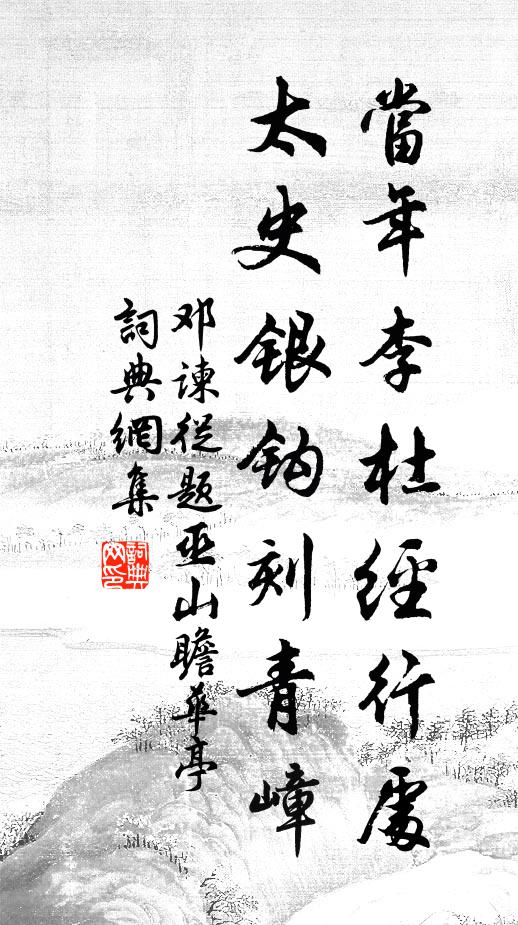 當年李杜經行處
太史銀鈎刻青嶂
邓諫從題巫山瞻華亭
詞典網集
詞典
网印